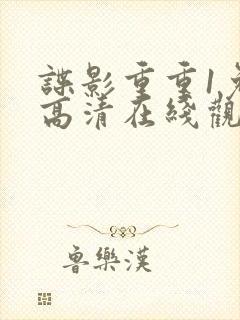 諜影重重1免
高清在綫觀
魯樂漢